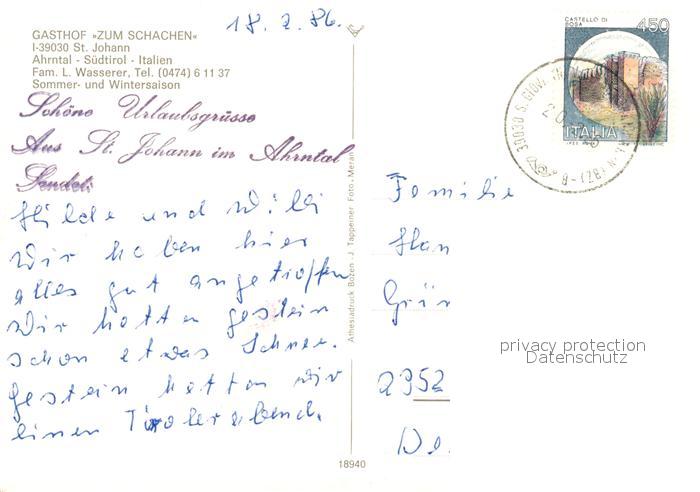 18. 2. 86.
GASTHOF »ZUM SCHACHEN«
I-39030 St. Johann
Ahrntal - Südtirol - Italien
Fam. L. Wasserer, Tel. (0474) 6 11 37
Sommer- und Wintersaison
Schöne Urlaubsgrüsse
Aus St. Johann im Ahrntal
Sendet:
Hilde und Willi
Wir haben hier
alles gut angetroffen
Wir hatten gestern
schon etwas Schnee.
gestern hatten wir
einen Tiroler abend.
Athesiadruck Bozen - J. Tappeiner Foto-Meran
18940
CASTELLO DI
BOSA
450
ITALIA
39030 S. GIOV.
(BZ) - B
Familie
Han
Grün
2352
privacy protection
Datenschutz